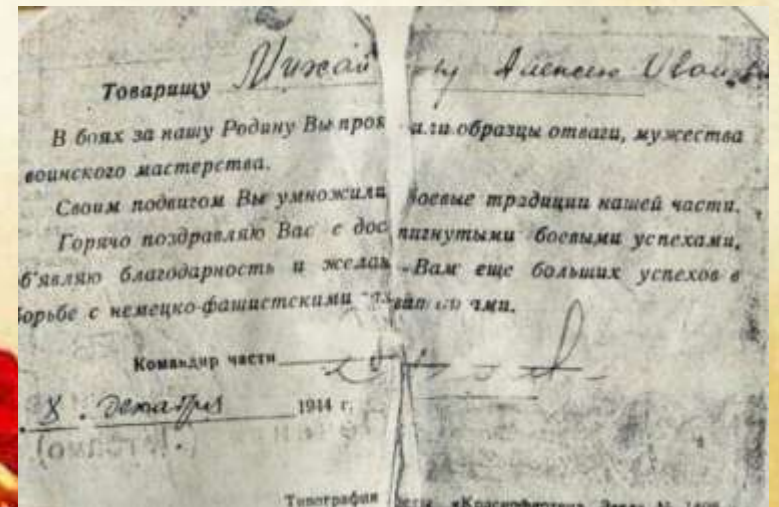 Товарищу Михай ву Алексею Иванови
В боях за нашу Родину Вы проя али образцы отваги, мужества
воинского мастерства.
Своим подвигом Вы умножили боевые традиции нашей части.
Горячо поздравляю Вас с дос тигнутыми боевыми успехами,
об'являю благодарность и желаю Вам еще больших успехов в
борьбе с немецко-фашистскими
Командир части
8. декабря 1944 г.
Типография